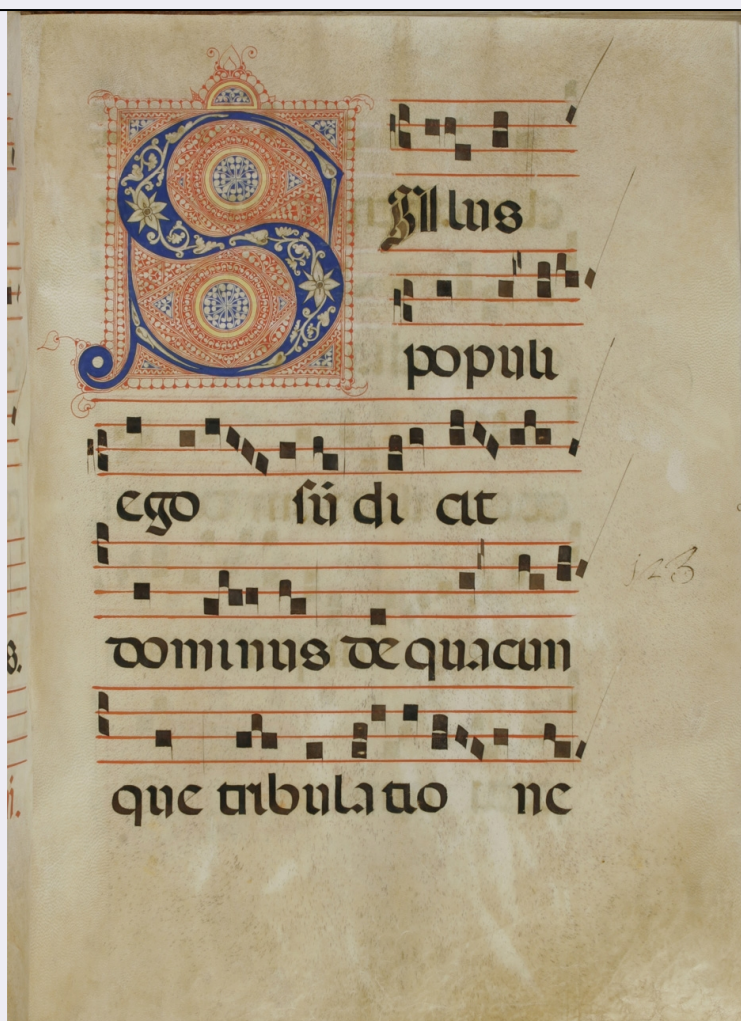 SAlus
populi
ego sū di cit
123
dominus de quacun
que tribulatio ne